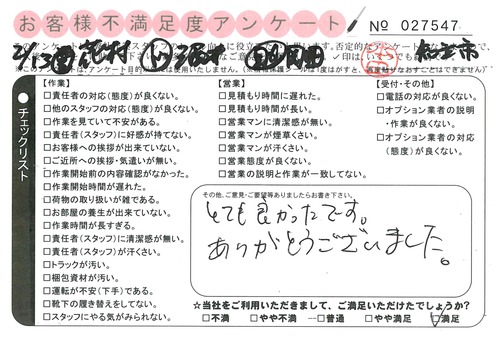 お客様不満足度アンケート
№ 027547
チェックリスト
【作業】
□責任者の対応(態度)が良くない。
□他のスタッフの対応(態度)が良くない。
□作業を見ていて不安がある。
□責任者(スタッフ)に好感が持てない。
□お客様への挨拶が出来ていない。
□ご近所への挨拶・気遣いが無い。
□作業開始前の内容確認がなかった。
□作業開始時間が遅れた。
□荷物の取り扱いが雑である。
□お部屋の養生が出来ていない。
□作業時間が長すぎる。
□責任者(スタッフ)に清潔感が無い。
□責任者(スタッフ)が汗くさい。
□トラックが汚い。
□梱包資材が汚い。
□運転が不安(下手)である。
□靴下の履き替えをしてない。
□スタッフにやる気がみられない。
【営業】
□見積もり時間に遅れた。
□見積もり時間が長い。
□営業マンに清潔感が無い。
□営業マンが煙草くさい。
□営業マンが汗くさい。
□営業態度が良くない。
□営業の説明と作業が一致してない。
【受付・その他】
□電話の対応が良くない。
□オプション業者の説明
・作業が良くない。
□オプション業者の対応
(態度)が良くない。
その他、ご意見・ご要望等ありましたらお書き下さい。
とても良かったです。
ありがとうございました。
☆当社をご利用いただきまして、ご満足いただけたでしょうか?
□不満 □やや不満 □普通 □やや満足 □満足